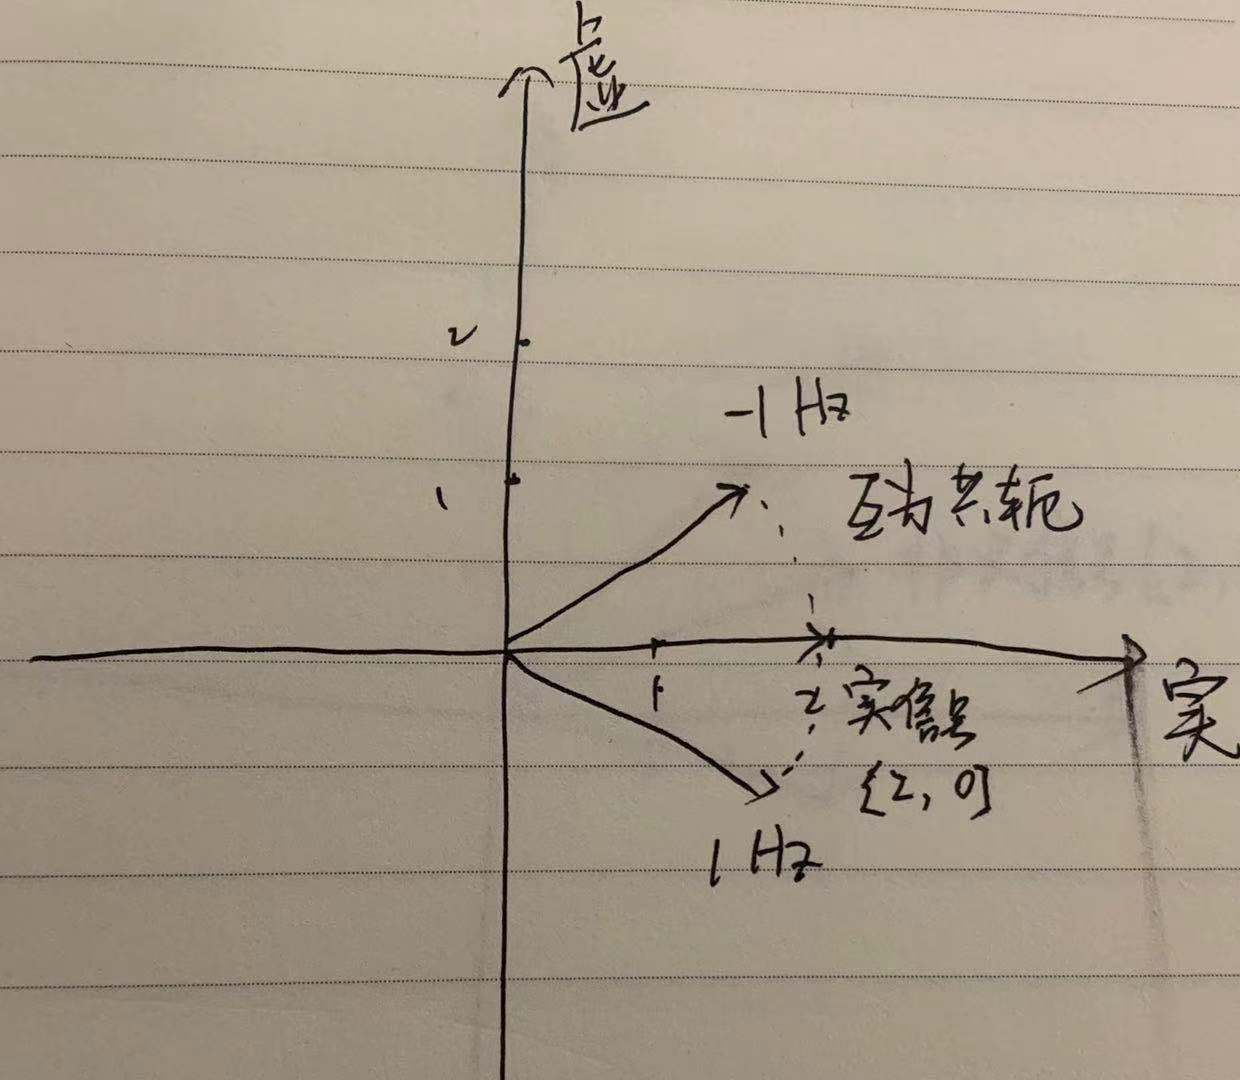 虚
2
-1 Hz
1
互为共轭
1
2
实信号
实
{2, 0}
1 Hz